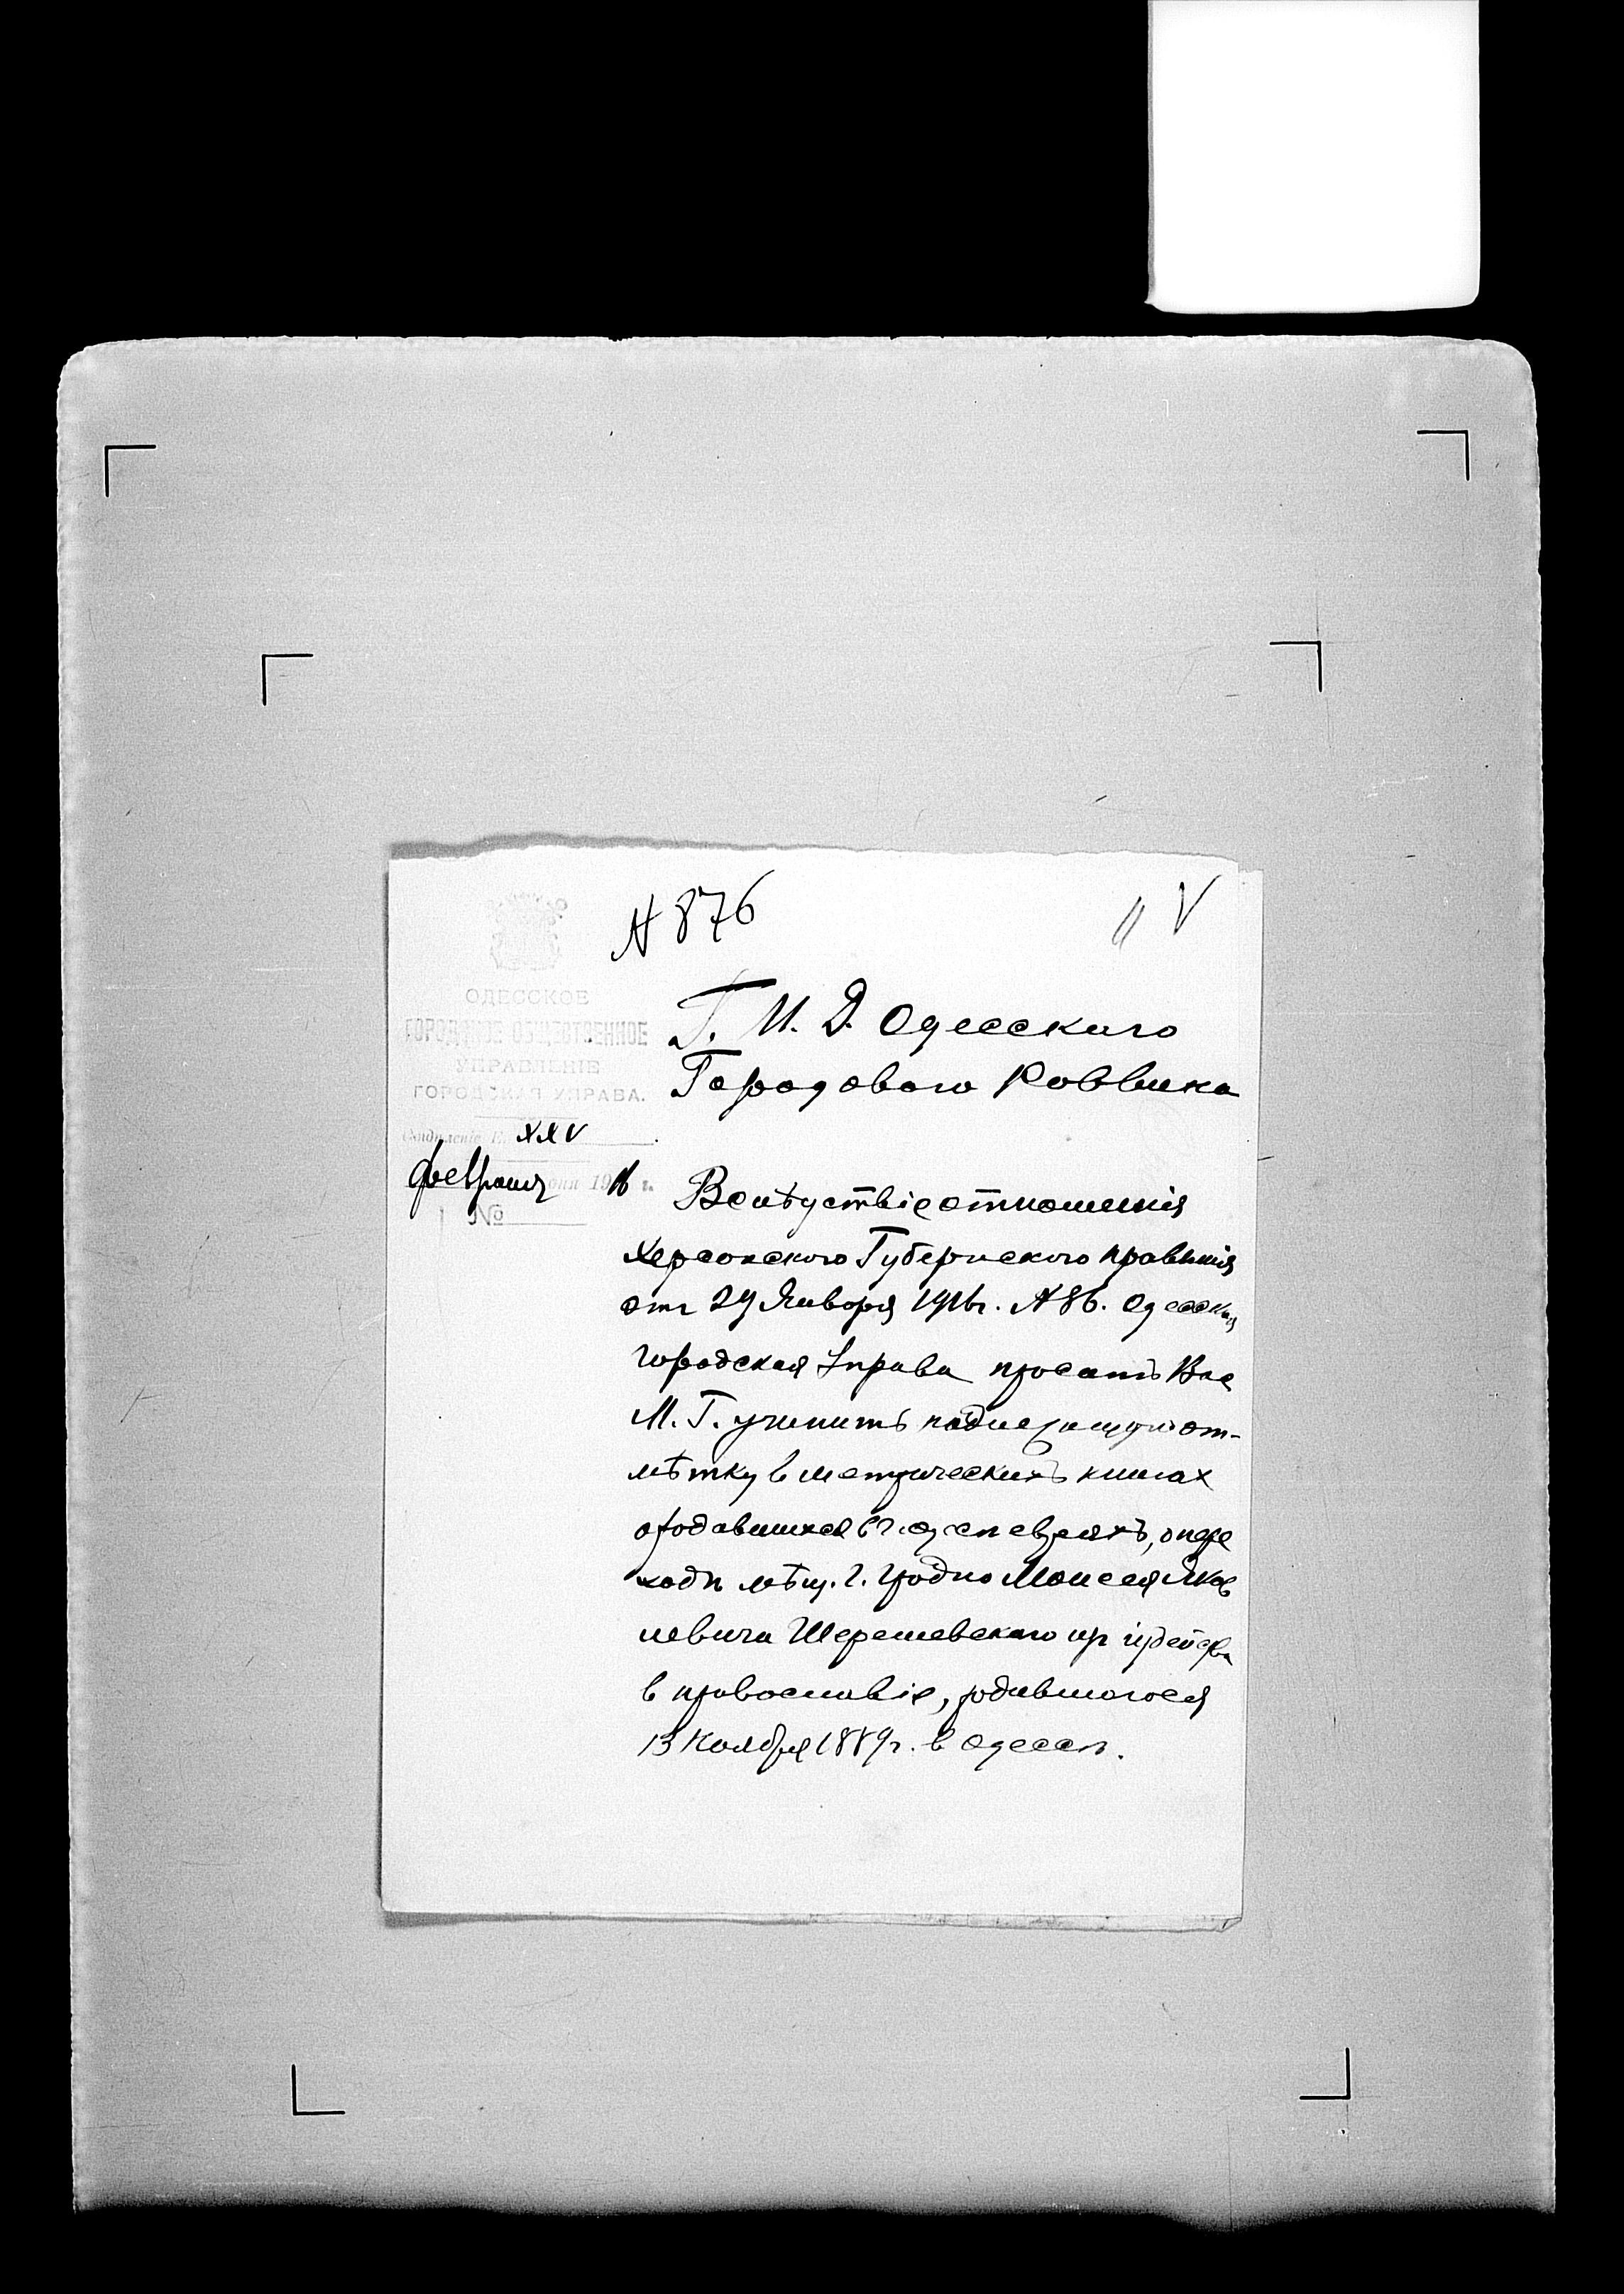 № 876
11 V
ОДЕССКОЕ
ГОРОДСКОЕ ОБЩЕСТВЕННОЕ
УПРАВЛЕНІЕ
ГОРОДСКАЯ УПРАВА.
XXV
Февраля дня 1916 г.
№
Г. И. Д. Одесскаго
Городового Раввина
Вслѣдствіе отношенія
Херсонского Губернского правленія
отъ 29 Января 1916 г. № 86. Одесская
городская Управа проситъ Вас
М. Г. учинить надлежащую от-
мѣтку в метрическихъ книгах
о родившихся в г. Одессѣ евреяхъ, о пере
ходѣ мѣщ. г. Гродно Моисея Яков
левича Шерешевскаго из іудейства
в православіе, родившагося
13 Ноября 1889 г. в Одессѣ.